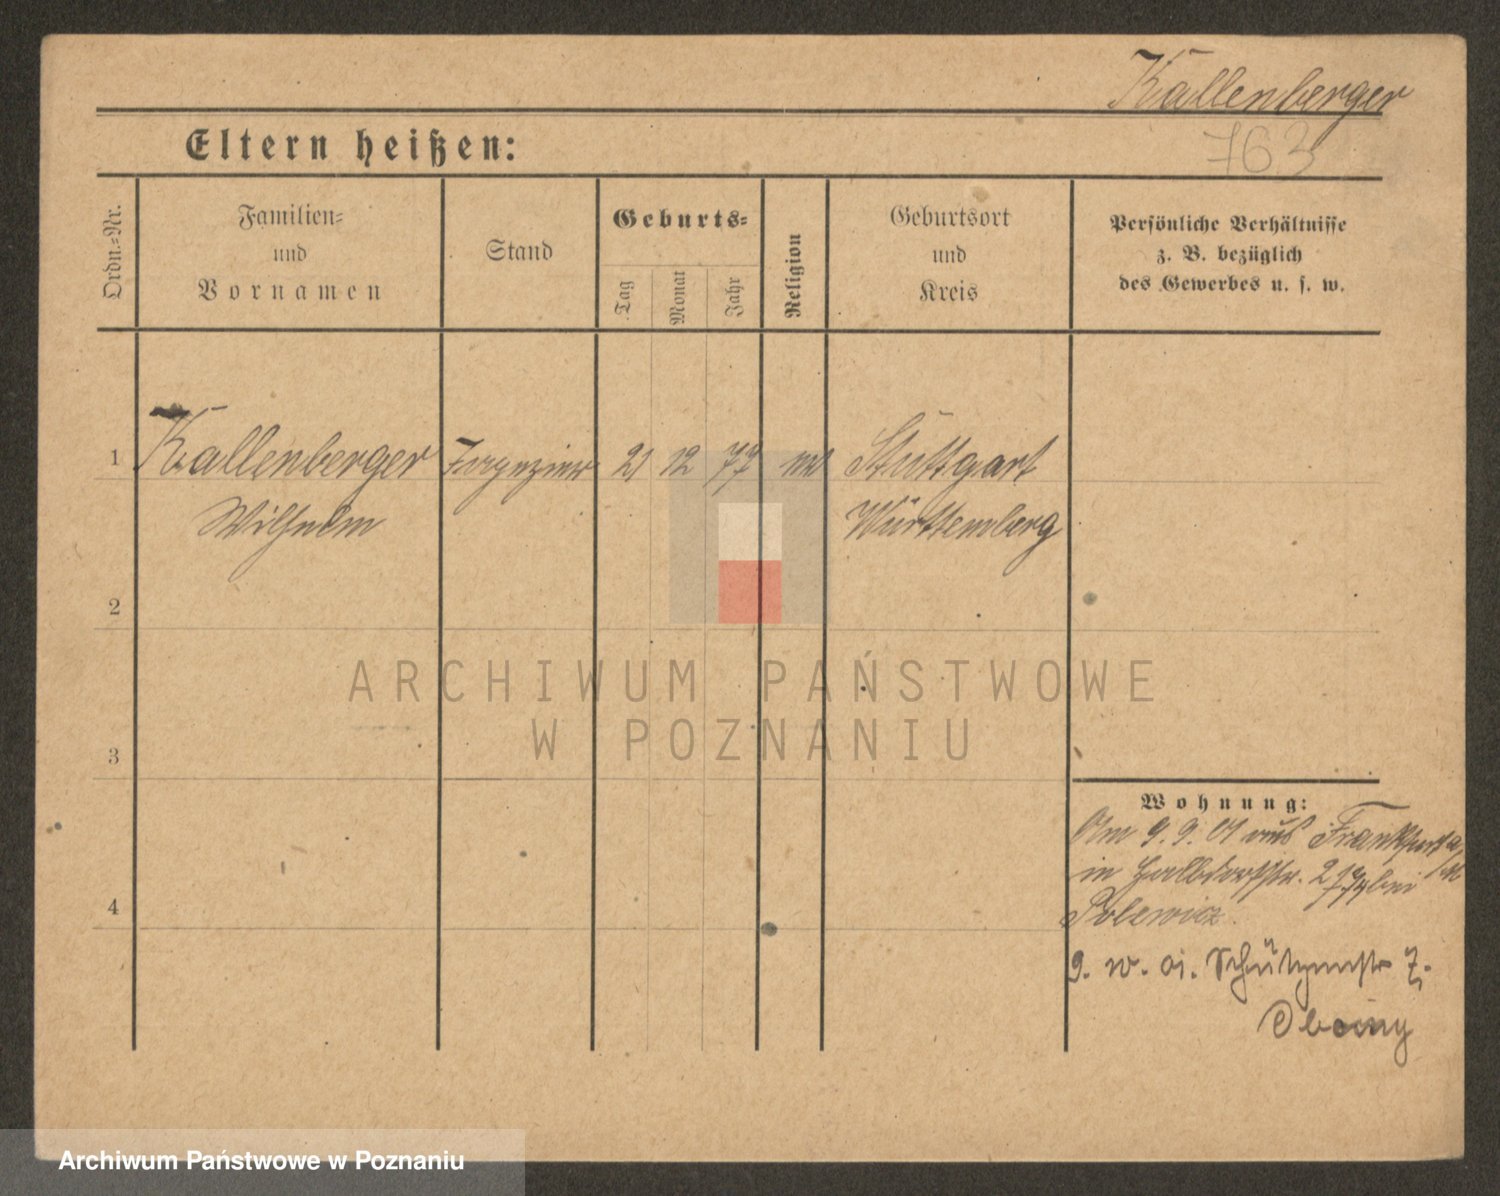 Kallenberger
763
Eltern heißen:
Ordn.=Nr.
Familien=
und
Vornamen
Stand
Geburts=
Tag
Monat
Jahr
Religion
Geburtsort
und
Kreis
Persönliche Verhältnisse
z. B. bezüglich
des Gewerbes u. s. w.
1 Kallenberger Tapezierer 21 12 77 ev Stuttgart
Wilhelm Württemberg
2
ARCHIWUM PAŃSTWOWE
W POZNANIU
3
Wohnung:
Am 9. 9. 01 aus Frankfurt a/M
in Halbdorfstr. bei
4
Schützenstr 7.
Archiwum Państwowe w Poznaniu